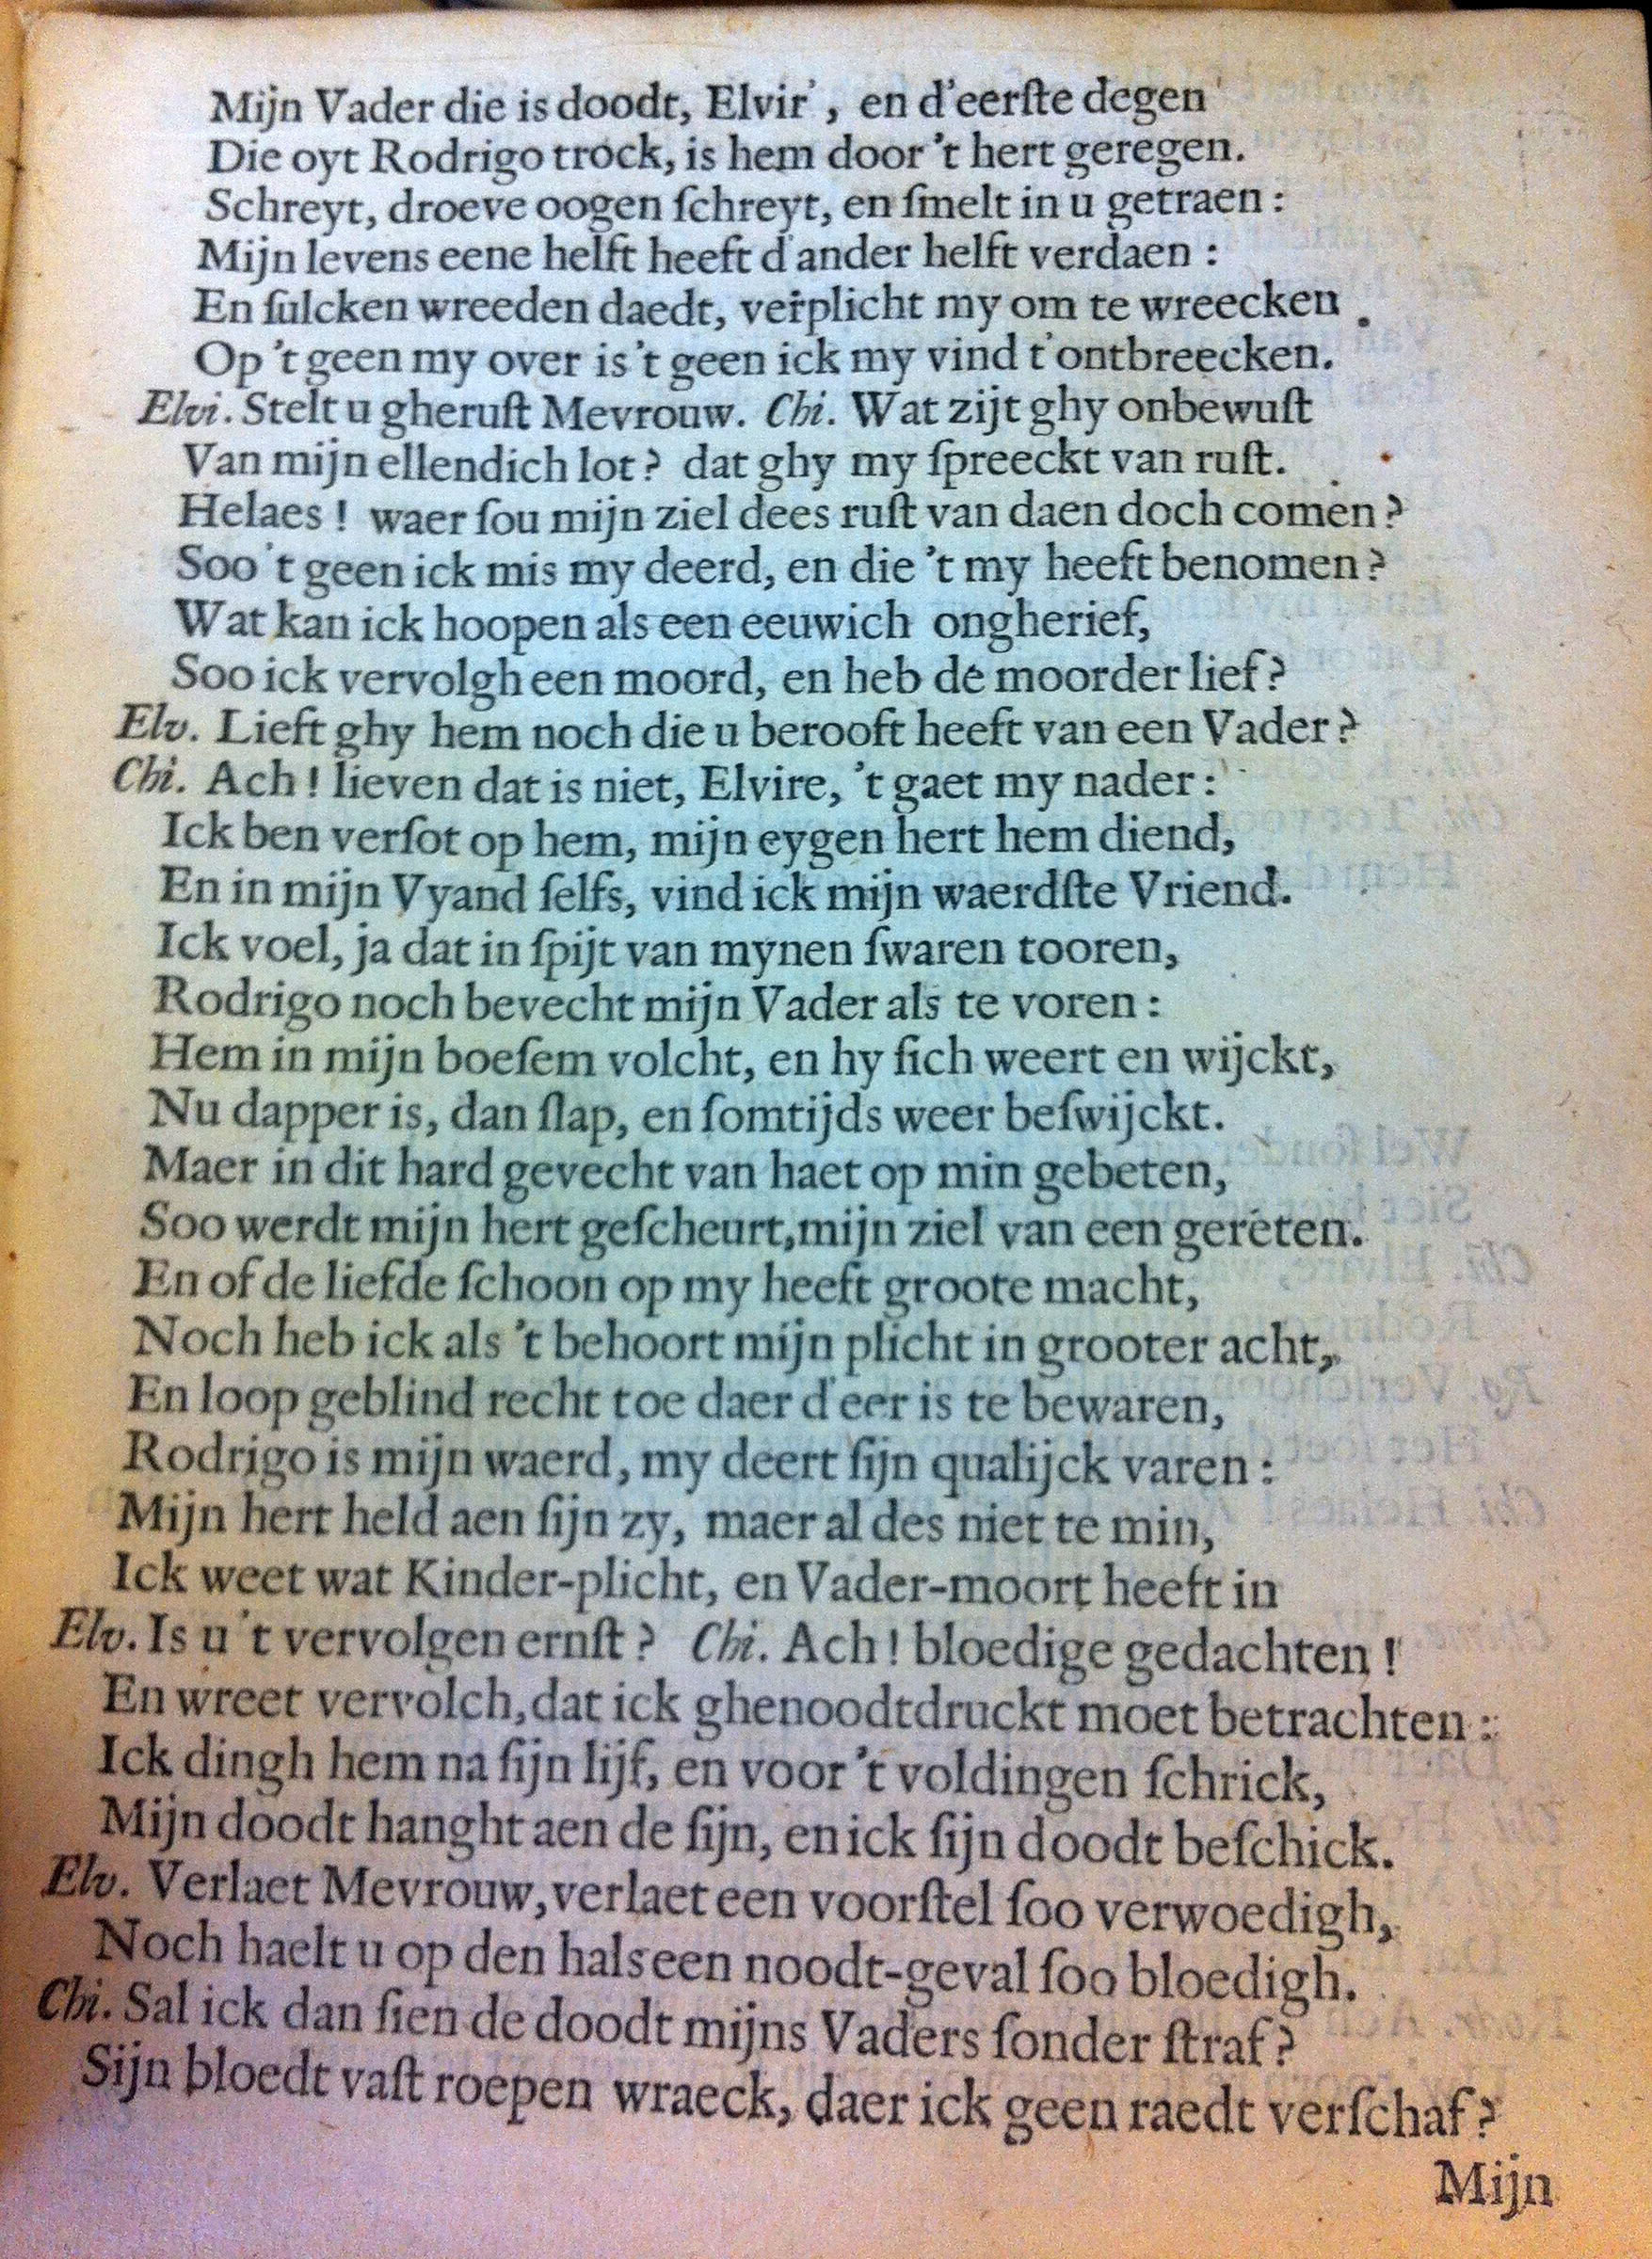 Mijn Vader die is doodt, Elvir', en d'eerſte degen
Die oyt Rodrigo trock, is hem door 't hert geregen.
Schreyt, droeve oogen ſchreyt, en ſmelt in u getraen :
Mijn levens eene helft heeft d'ander helft verdaen :
En ſulcken wreeden daedt, verplicht my om te wreecken
Op 't geen my over is 't geen ick my vind t'ontbreecken.
Elvi. Stelt u gheruſt Mevrouw. Chi. Wat zijt ghy onbewuſt
Van mijn ellendich lot ? dat ghy my ſpreeckt van ruſt.
Helaes ! waer ſou mijn ziel dees ruſt van daen doch comen ?
Soo 't geen ick mis my deerd, en die 't my heeft benomen ?
Wat kan ick hoopen als een eeuwich ongherief,
Soo ick vervolgh een moord, en heb de moorder lief ?
Elv. Lieft ghy hem noch die u berooft heeft van een Vader ?
Chi. Ach ! lieven dat is niet, Elvire, 't gaet my nader :
Ick ben verſot op hem, mijn eygen hert hem diend,
En in mijn Vyand ſelfs, vind ick mijn waerdſte Vriend.
Ick voel, ja dat in ſpijt van mynen ſwaren tooren,
Rodrigo noch bevecht mijn Vader als te voren :
Hem in mijn boeſem volcht, en hy ſich weert en wijckt,
Nu dapper is, dan ſlap, en ſomtijds weer beſwijckt.
Maer in dit hard gevecht van haet op min gebeten,
Soo werdt mijn hert geſcheurt, mijn ziel van een gereten.
En of de liefde ſchoon op my heeft groote macht,
Noch heb ick als 't behoort mijn plicht in grooter acht,
En loop geblind recht toe daer d'eer is te bewaren,
Rodrigo is mijn waerd, my deert ſijn qualijck varen :
Mijn hert held aen ſijn zy, maer al des niet te min,
Ick weet wat Kinder-plicht, en Vader-moort heeft in
Elv. Is u 't vervolgen ernſt ? Chi. Ach ! bloedige gedachten !
En wreet vervolch, dat ick ghenoodtdruckt moet betrachten :
Ick dingh hem na ſijn lijf, en voor 't voldingen ſchrick,
Mijn doodt hanght aen de ſijn, en ick ſijn doodt beſchick.
Elv. Verlaet Mevrouw, verlaet een voorſtel ſoo verwoedigh,
Noch haelt u op den hals een noodt-geval ſoo bloedigh.
Chi. Sal ick dan ſien de doodt mijns Vaders ſonder ſtraf ?
Sijn bloedt vaſt roepen wraeck, daer ick geen raedt verſchaf ?
Mijn